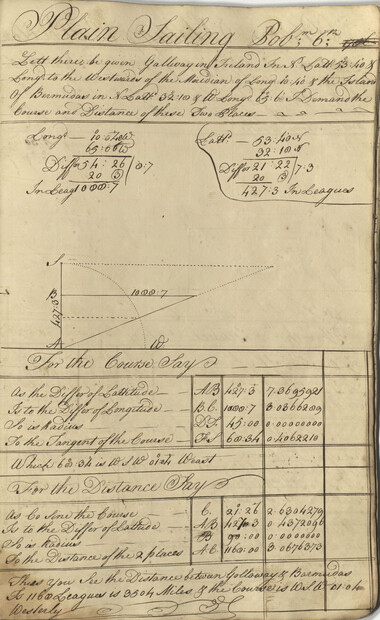 Plain Sailing Pobm 6th
Lett there be given Gallway in Ireland In N Latt 53:40 &
Long to the Westward of the Meridian of Long 10:40 & the Island
Of Bermudas in N Latt 32:10 & W Long 65:6 I Demand the
Course and Distance of these Two Places
Long
65:06 W
Differ 54:26
20 (3) 8:7
In Leag 1088:7
Latt 53:40 N
32:18 N
Differ 21:22
20 (3) 7:3
427:3 In Leagues
S
B 1088:7
427:3
A W
For the Course Say
As the Differ of Latitude AB 427:3
Is to the Differ of Longitude BC 1088:7
So is Radius 45:00
To the Tangent of the Course 68:34 0.4062210
Which 68:34 is W S W West
For the Distance Say
As Co Sine the Course C 21:26
Is to the Differ of Latitude AB 427:3
So is Radius B 90:00
To the Distance of the 2 places AC 1160:00 3 0676373
Thus you See the Distance between Gallway & Bermudas
Is 1168 Leagues is 3504 Miles & the Course is W S W 01:04
Westerly